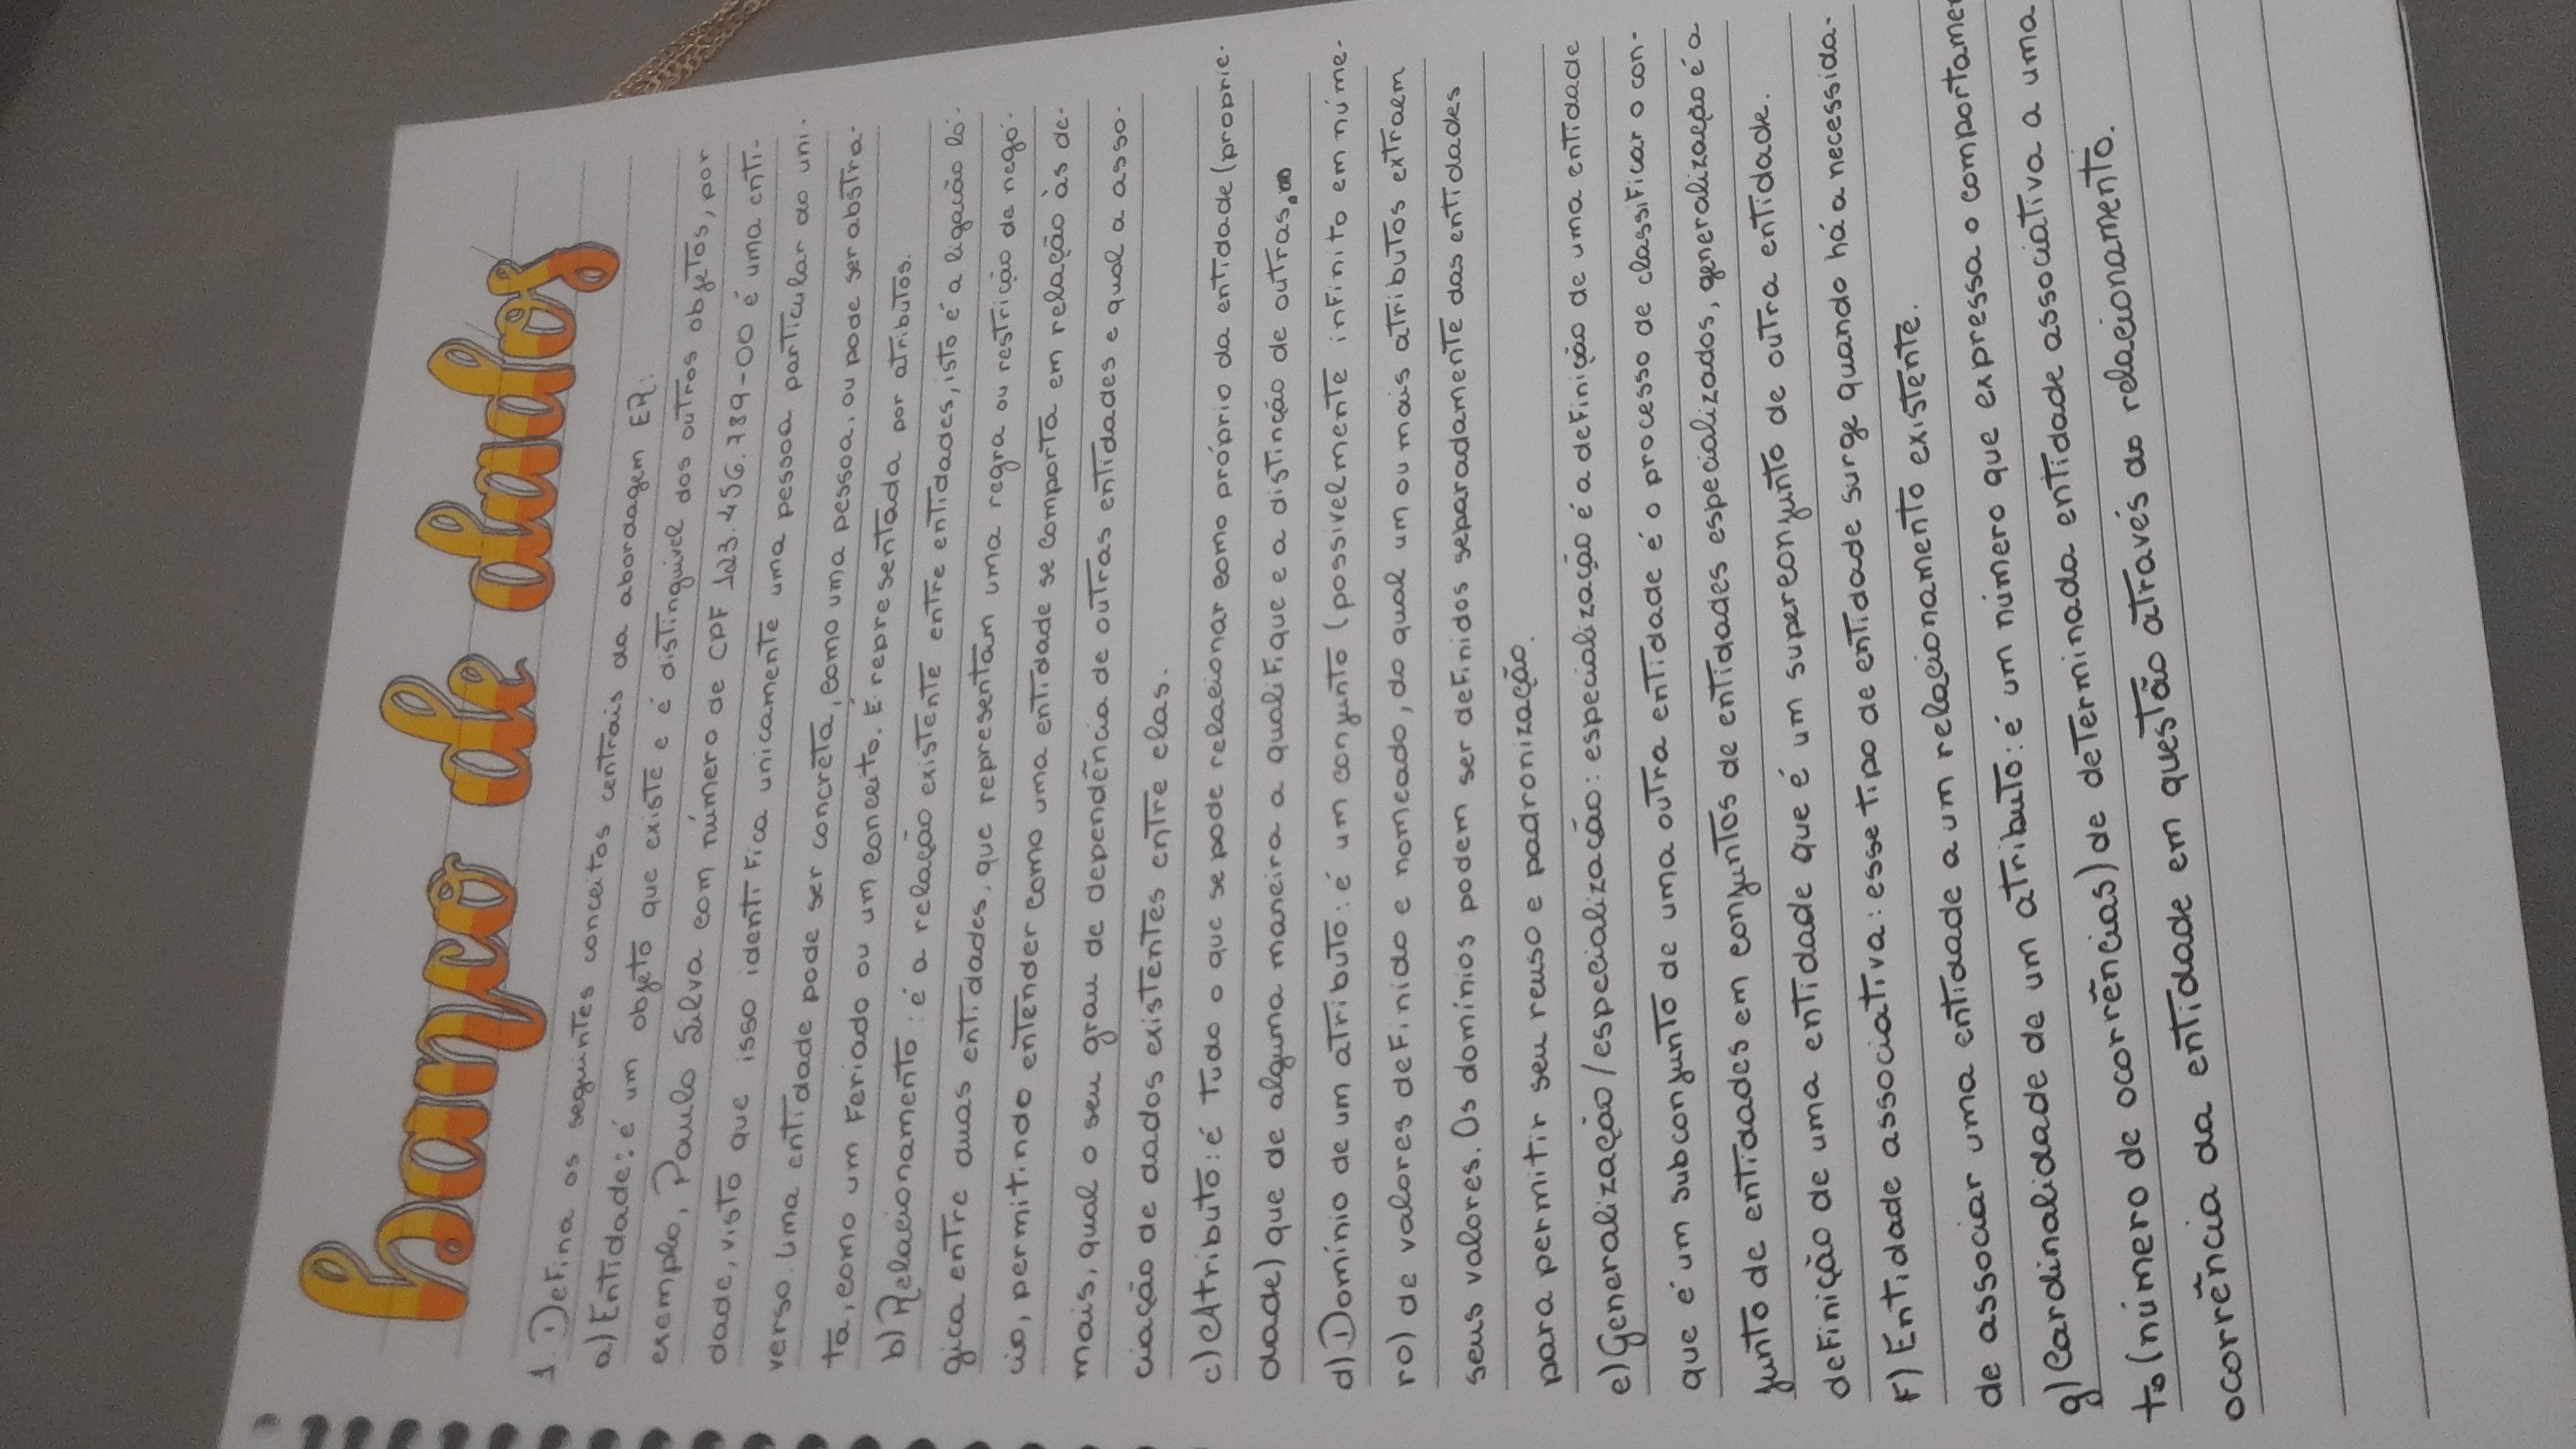 banco de dados
1. Defina os seguintes conceitos centrais da abordagem ER:
a) Entidade: é um objeto que existe e é distinguível dos outros objetos, por
exemplo, Paulo Silva com número de CPF 123.456.789-00 é uma enti-
dade, visto que isso identifica unicamente uma pessoa particular do uni-
verso. Uma entidade pode ser concreta, como uma pessoa, ou pode ser abstra-
ta, como um feriado ou um conceito. É representada por atributos.
b) Relacionamento: é a relação existente entre entidades, isto é a ligação ló-
gica entre duas entidades, que representam uma regra ou restrição de negó-
cio, permitindo entender como uma entidade se comporta em relação às de-
mais, qual o seu grau de dependência de outras entidades e qual a asso-
ciação de dados existentes entre elas.
c) Atributo: é tudo o que se pode relacionar como próprio da entidade (proprie-
dade) que de alguma maneira a qualifique e a distinção de outras.
d) Domínio de um atributo: é um conjunto (possivelmente infinito em núme-
ro) de valores definido e nomeado, do qual um ou mais atributos extraem
seus valores. Os domínios podem ser definidos separadamente das entidades
para permitir seu reuso e padronização.
e) Generalização/especialização: especialização é a definição de uma entidade
que é um subconjunto de uma outra entidade é o processo de classificar o con-
junto de entidades em conjuntos de entidades especializados, generalização é a
definição de uma entidade que é um superconjunto de outra entidade.
F) Entidade associativa: esse tipo de entidade surge quando há a necessida-
de associar uma entidade a um relacionamento existente.
g) Cardinalidade de um atributo: é um número que expressa o comportamen
to (número de ocorrências) de determinada entidade associativa a uma
ocorrência da entidade em questão através do relacionamento.